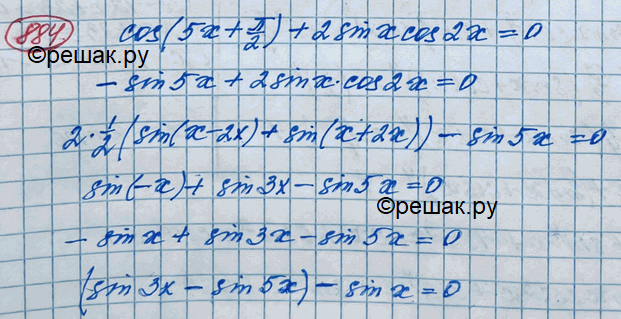 884. cos(5x + π/2) + 2 sin x cos 2x = 0
©решак.ру
- sin 5x + 2 sin x · cos 2x = 0
2 · 1/2 (sin(x - 2x) + sin(x + 2x)) - sin 5x = 0
sin(-x) + sin 3x - sin 5x = 0
©решак.ру
- sin x + sin 3x - sin 5x = 0
(sin 3x - sin 5x) - sin x = 0